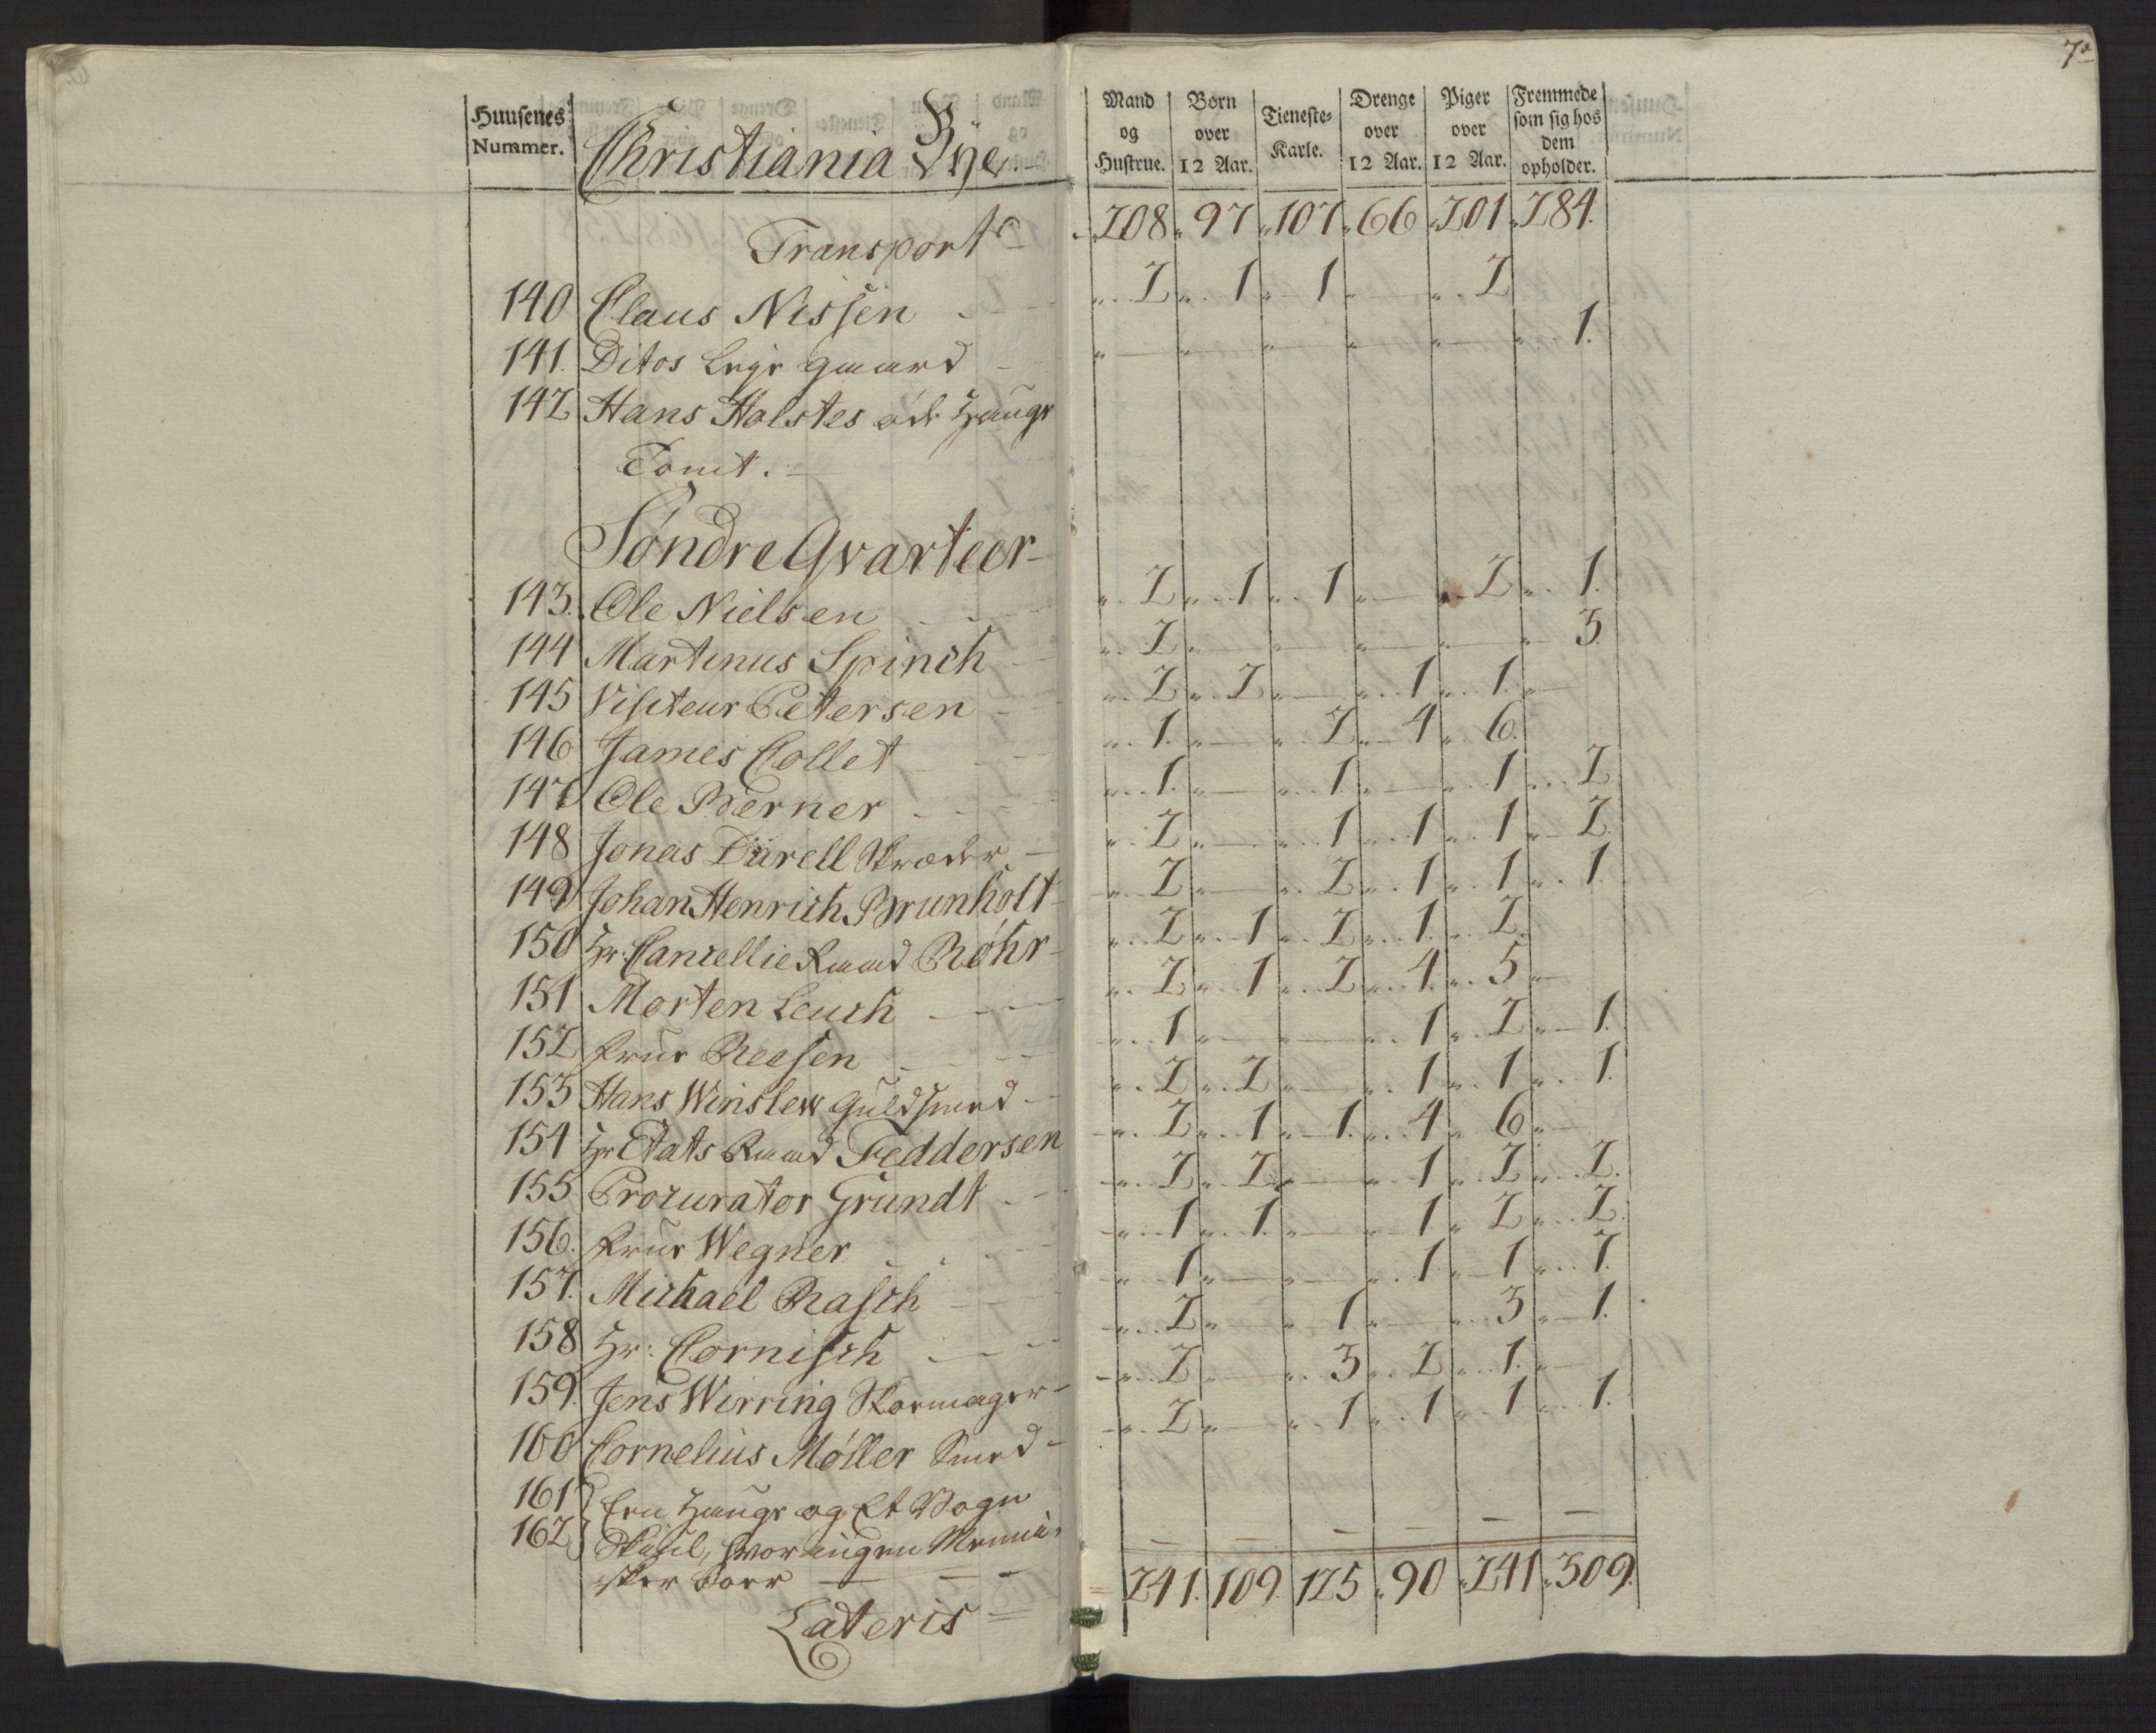 7a
Huusenes Nummer.
Christiania Bÿe.
Mand og Hustrue.
Børn over 12 Aar.
Tieneste-Karle.
Drenge over 12 Aar.
Piger over 12 Aar.
Fremmede som sig hos dem opholder.
Transport 208. 97. 107. 66. 201. 284.
140 Claus Nissen 2 1 1 — 2
141. Ditos Leye Gaard — — — — — 1.
142 Hans Holstes øde Huuse
Tomt.
Søndre Qvarteer
143. Ole Nielsen 2 1 1 — 2 1.
144 Martinus Spinch 2 — — — — 3.
145 Visiteur Petersen 2 2 — 1 1. —
146 James Collet 1. — 2 4 6.
147 Ole Berner 1. — 1 — 1 2
148 Jonas Dürell Skræder 2 — 1 1 1 2.
149 Johan Henrich Brunholt 2 — 2 1 1 1.
150 Hr. Cancellie Raad Röhr 2 1 2 1. 2.
151 Morten Leuch 2 1 2 4. 5 —
152 Frue Reesen 1 — — 1 2 1.
153 Hans Winslew Guldsmed 2 2 — 1 1 1.
154 Hr Etats Raad Feddersen 2 1 1. 4 6 —
155 Procurator Grundt 2 2 — 1 2 2.
156. Frue Wegner 1 1. — 1 2 2.
157. Michael Rasch 1 — — 1 1 7.
158 Hr. Cornisch 2 — 1 — 3 1.
159. Jens Wirring Skomager 2 — 3 2 1. —
160 Cornelius Møller Smed 2 — 1 1 1 1.
161 Een Huuse og Et Vogn
162 Skuul, hvor ingen Menni-
sker boer
Lateris = 241. 109. 125. 90 241. 309.